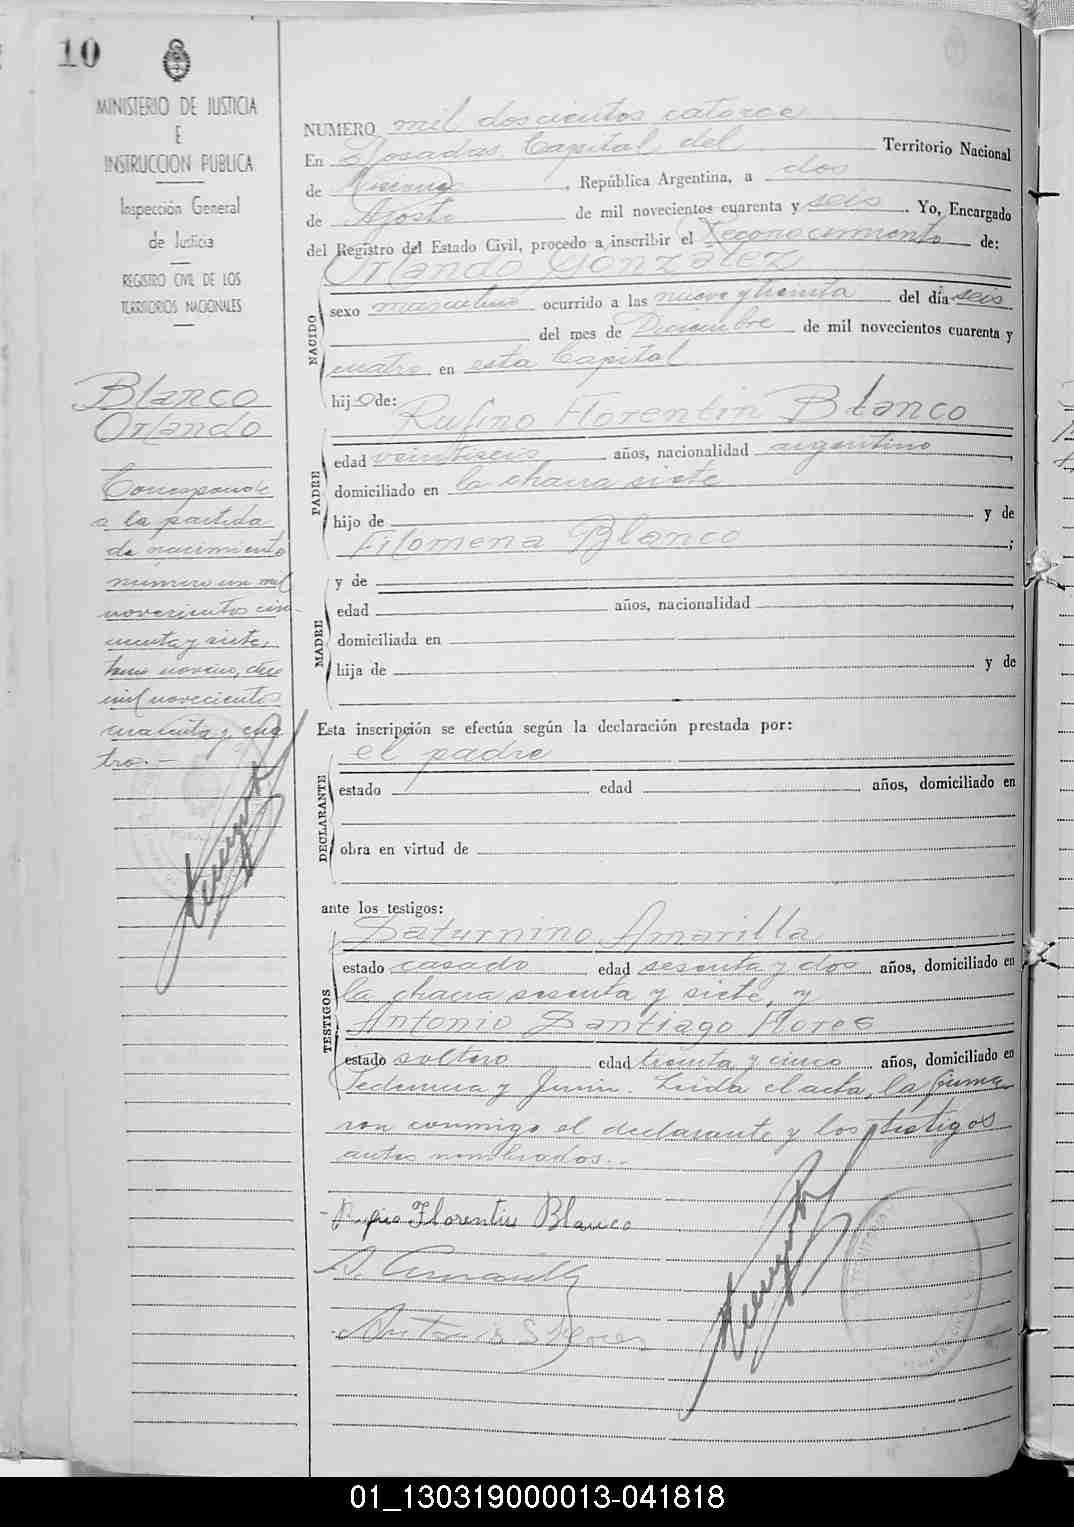 10
MINISTERIO DE JUSTICIA
E
INSTRUCCION PUBLICA
Inspección General
de Justicia
REGISTRO CIVIL DE LOS
TERRITORIOS NACIONALES
Blanco
Orlando
Corresponde
a la partida
de nacimiento
número un mil
novecientos cin-
cuenta y siete,
tomo noveno, año
mil novecientos
cuarenta y cua
tro.-
NUMERO mil doscientos catorce
En Posadas, Capital del Territorio Nacional
de Misiones, República Argentina, a dos
de Agosto de mil novecientos cuarenta y seis. Yo, Encargado
del Registro del Estado Civil, procedo a inscribir el Reconocimiento de:
Orlando Gonzalez
NACIDO
sexo masculino ocurrido a las nueve y treinta del día seis
del mes de Diciembre de mil novecientos cuarenta y
cuatro en esta Capital
hijo de:
Rufino Florentin Blanco
PADRE
edad veintiseis años, nacionalidad argentino,
domiciliado en la chacra siete
hijo de y de
Filomena Blanco;
MADRE
y de
edad años, nacionalidad,
domiciliada en
hija de y de
Esta inscripción se efectúa según la declaración prestada por:
el padre
DECLARANTE
estado edad años, domiciliado en
obra en virtud de
ante los testigos:
TESTIGOS
Saturnino Amarilla
estado casado edad sesenta y dos años, domiciliado en
la chacra sesenta y siete, y
Antonio Santiago Flores
estado soltero edad treinta y cinco años, domiciliado en
y Junin. Leida el acta, la firma
ron conmigo el declarante y los testigos
antes nombrados.-
Rufino Florentin Blanco
S. Amarilla
Antonio S Flores
01_130319000013-041818